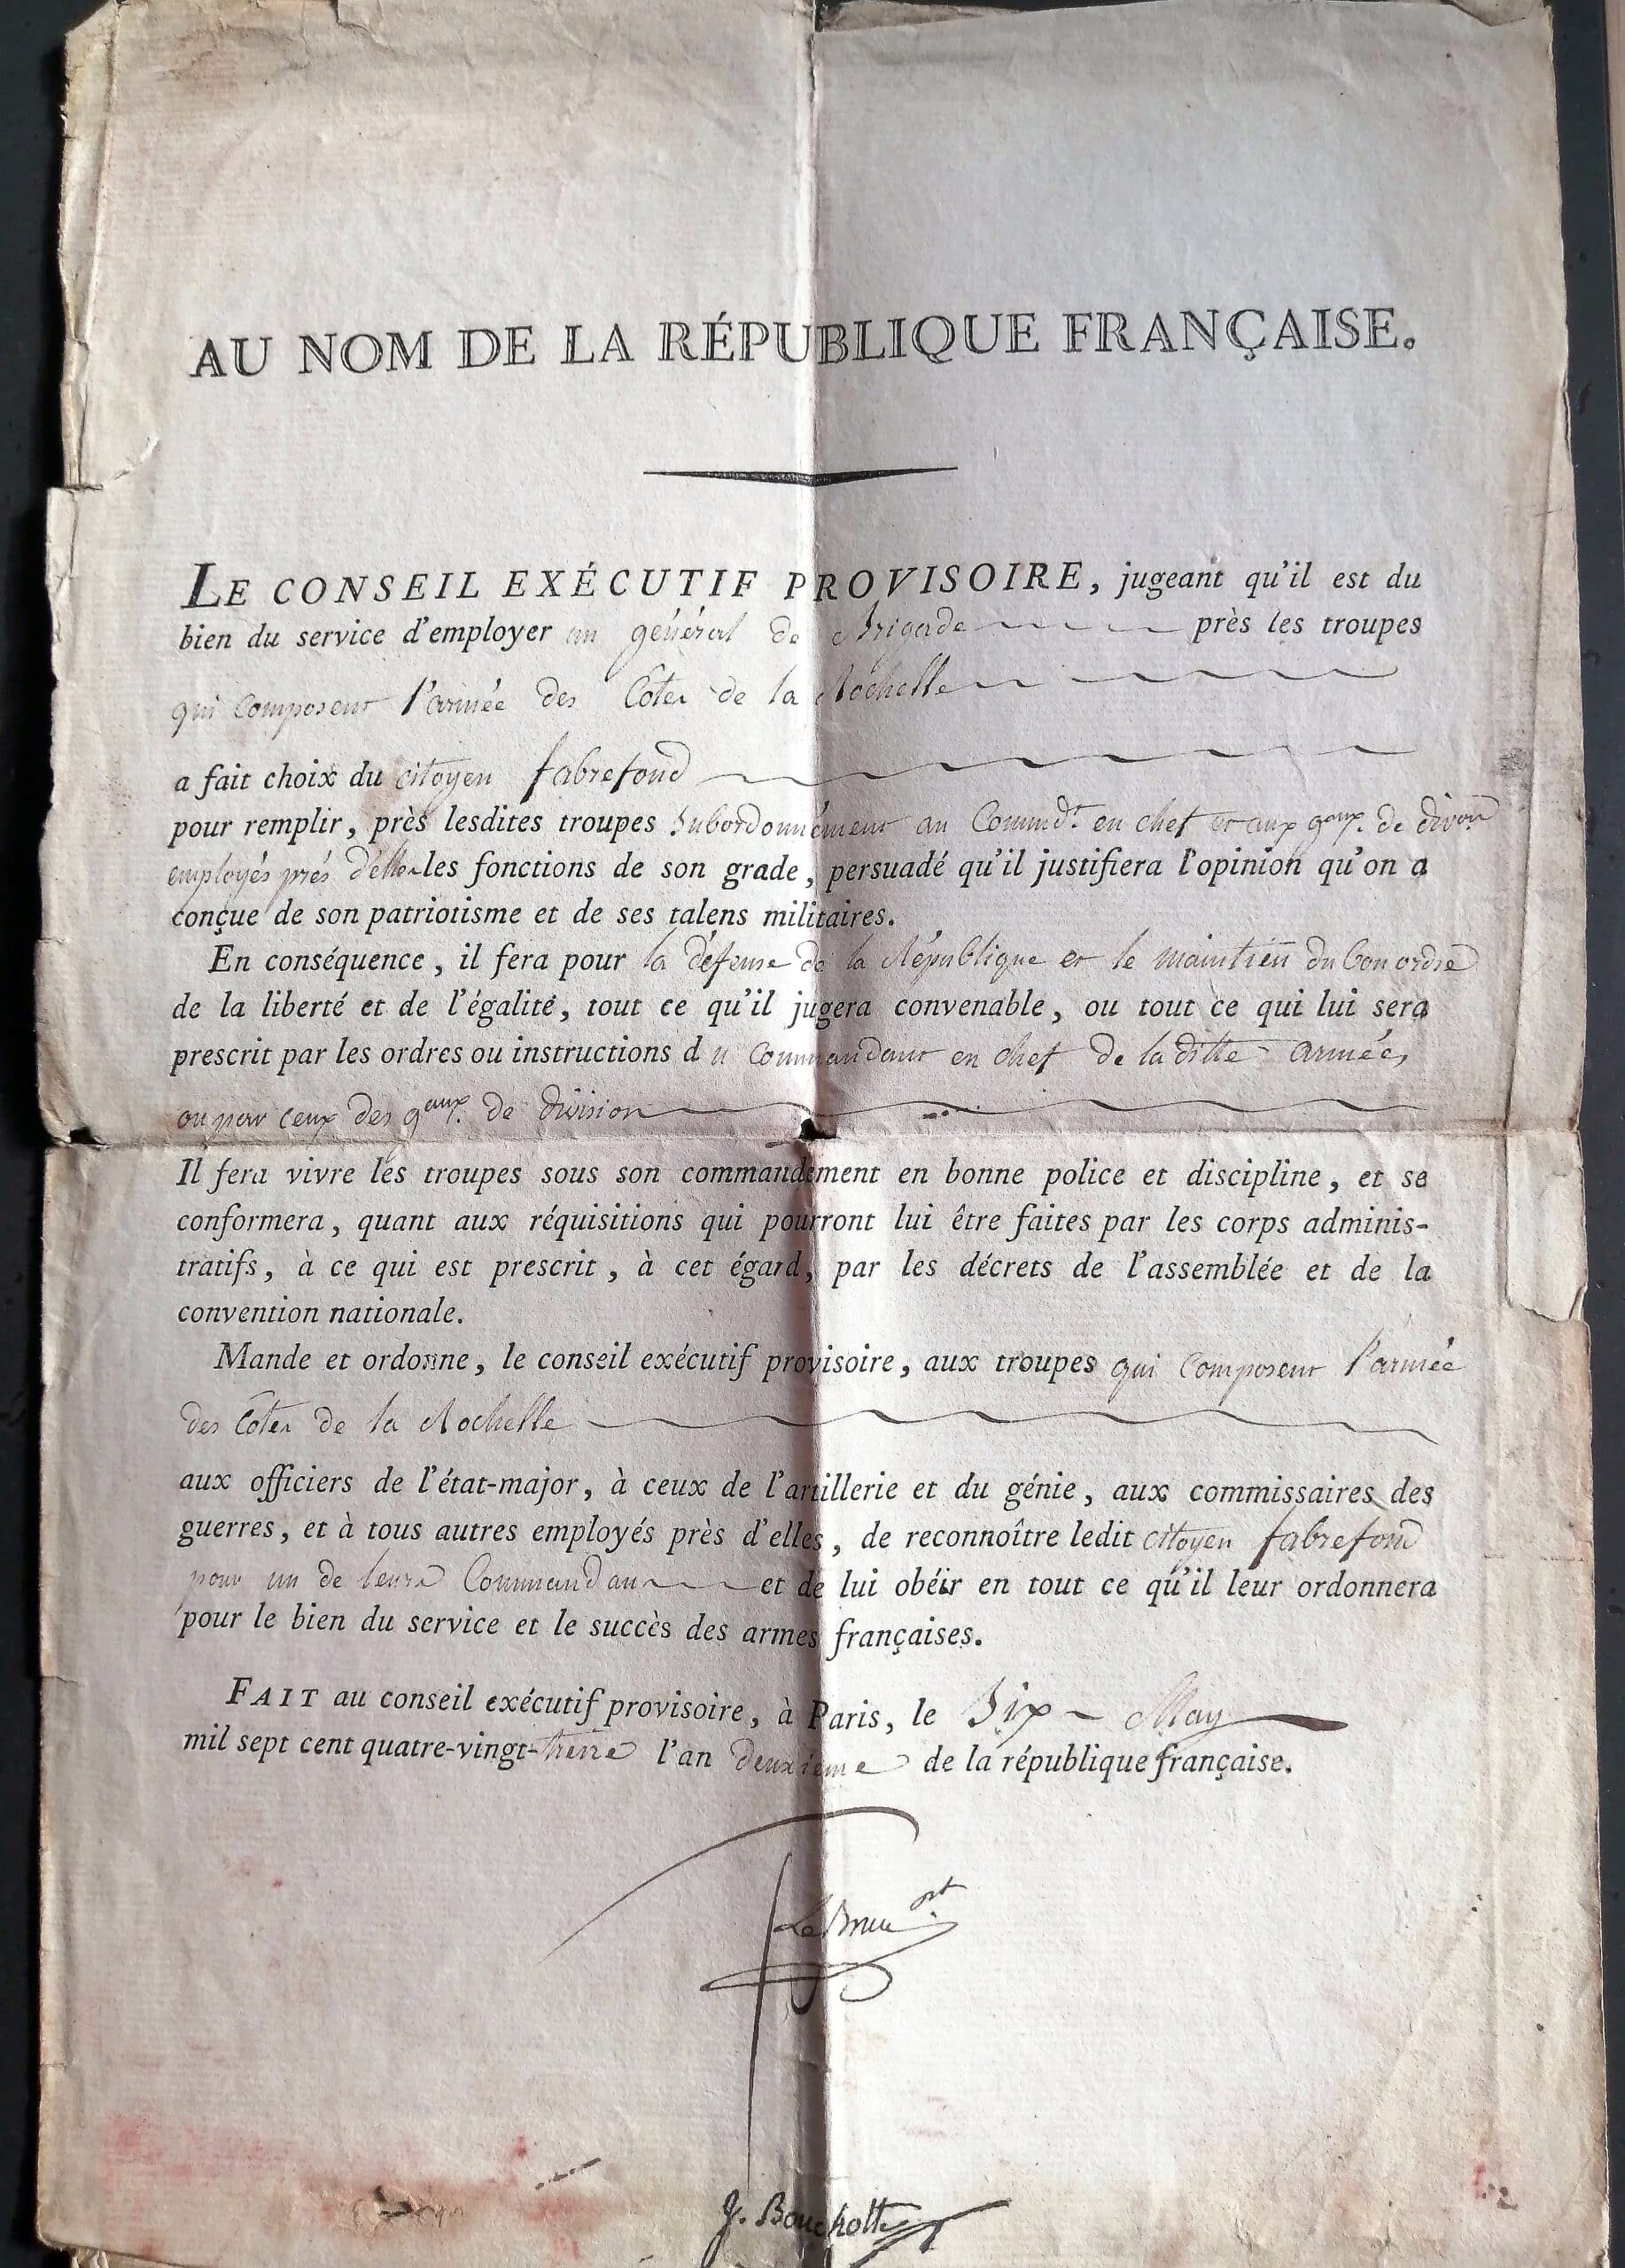 AU NOM DE LA RÉPUBLIQUE FRANÇAISE.
LE CONSEIL EXÉCUTIF PROVISOIRE, jugeant qu'il est du
bien du service d'employer un général de Brigade près les troupes
qui composent l'armée des Côtes de la Rochelle
a fait choix du citoyen fabrefond
pour remplir, près lesdites troupes Subordonnément au Commdt. en chef et aux gaux. de divon
employés près d'elles les fonctions de son grade, persuadé qu'il justifiera l'opinion qu'on a
conçue de son patriotisme et de ses talens militaires.
En conséquence, il fera pour la défense de la République et le maintien du bon ordre
de la liberté et de l'égalité, tout ce qu'il jugera convenable, ou tout ce qui lui sera
prescrit par les ordres ou instructions du Commandant en chef de la ditte armée,
ou par ceux des gaux. de division
Il fera vivre les troupes sous son commandement en bonne police et discipline, et se
conformera, quant aux réquisitions qui pourront lui être faites par les corps adminis-
tratifs, à ce qui est prescrit, à cet égard, par les décrets de l'assemblée et de la
convention nationale.
Mande et ordonne, le conseil exécutif provisoire, aux troupes qui composent l'armée
des Côtes de la Rochelle
aux officiers de l'état-major, à ceux de l'artillerie et du génie, aux commissaires des
guerres, et à tous autres employés près d'elles, de reconnoître ledit citoyen fabrefond
pour un de leurs Commandans et de lui obéir en tout ce qu'il leur ordonnera
pour le bien du service et le succès des armes françaises.
FAIT au conseil exécutif provisoire, à Paris, le Six May
mil sept cent quatre-vingt-treize l'an deuxième de la république française.
LeBrun
J. Bouchotte